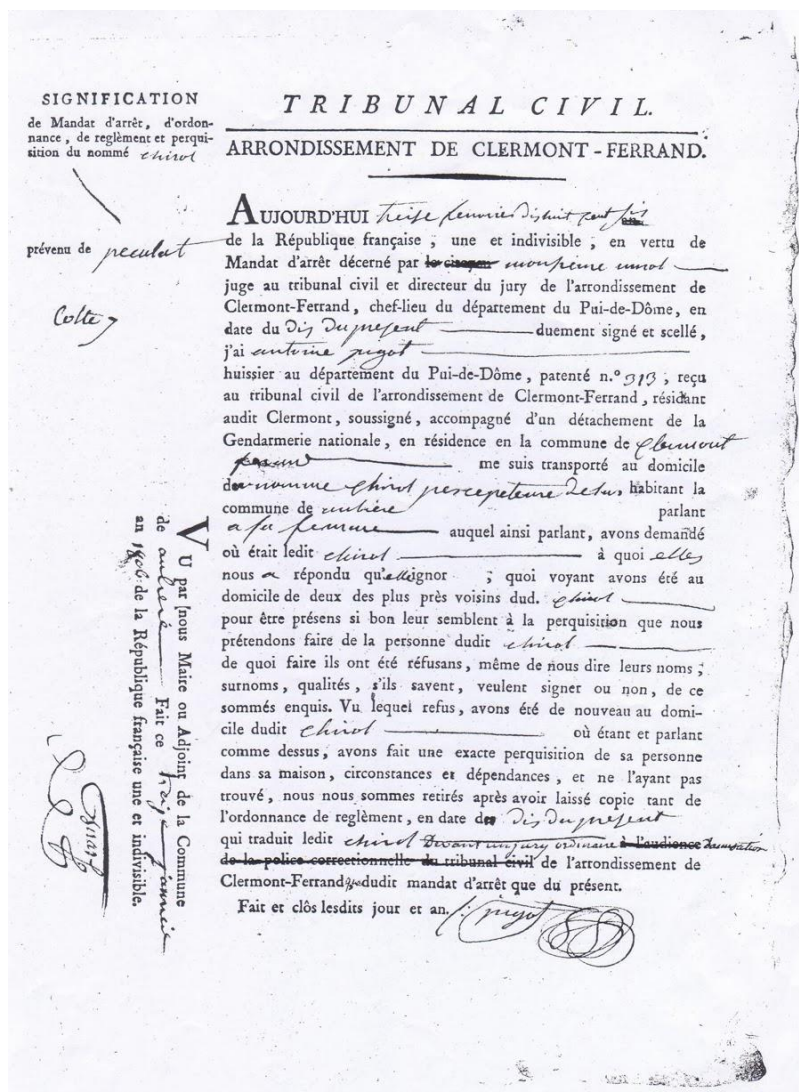 SIGNIFICATION
de Mandat d'arrêt, d'ordon-
nance, de reglèment et perqui-
sition du nommé chirol
prévenu de peculat
TRIBUNAL CIVIL.
ARRONDISSEMENT DE CLERMONT-FERRAND.
AUJOURD'HUI treise dishuit cent six
de la République françaife ; une et indivisible ; en vertu de
Mandat d'arrêt décerné par le citoyen
juge au tribunal civil et directeur du jury de l'arrondissement de
Clermont-Ferrand, chef-lieu du département du Pui-de-Dôme, en
date du dis du present duement signé et scellé,
j'ai antoine pigot
huissier au département du Pui-de-Dôme, patenté n.° 313, reçu
au tribunal civil de l'arrondissement de Clermont-Ferrand, résidant
audit Clermont, soussigné, accompagné d'un détachement de la
Gendarmerie nationale, en résidence en la commune de Clermont
ferrand me suis transporté au domicile
du nomme Chirol habitant la
commune de aubière parlant
a sa femme auquel ainsi parlant, avons demandé
où était ledit chirol à quoi elles
nous a répondu qu'elleignor ; quoi voyant avons été au
domicile de deux des plus près voisins dud. chirol
pour être présens si bon leur semblent à la perquisition que nous
prétendons faire de la personne dudit chirol
de quoi faire ils ont été réfusans, même de nous dire leurs noms ;
surnoms, qualités, s'ils savent, veulent signer ou non, de ce
sommés enquis. Vu lequel refus, avons été de nouveau au domi-
cile dudit chirol où étant et parlant
comme dessus, avons fait une exacte perquisition de sa personne
dans sa maison, circonstances et dépendances, et ne l'ayant pas
trouvé, nous nous sommes retirés après avoir laissé copie tant de
l'ordonnance de reglèment, en date du dis du present
qui traduit ledit chirol devant un jury ordinaire à l'audience d'accusation
de la police correctionnelle du tribunal civil de l'arrondissement de
Clermont-Ferrand que dudit mandat d'arrêt que du présent.
Fait et clôs lesdits jour et an. pigot
VU par nous Maire ou Adjoint de la Commune
de aubiere Fait ce
an 1806 de la République française une et indivisible.